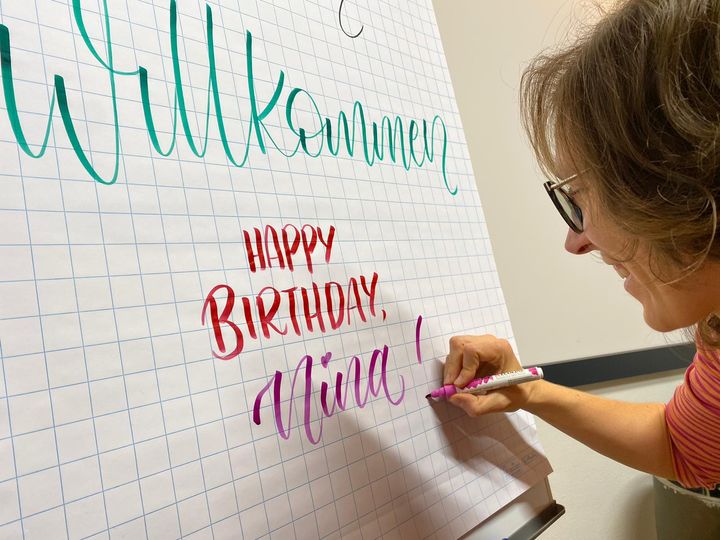 Willkommen
HAPPY
BIRTHDAY,
Nina!